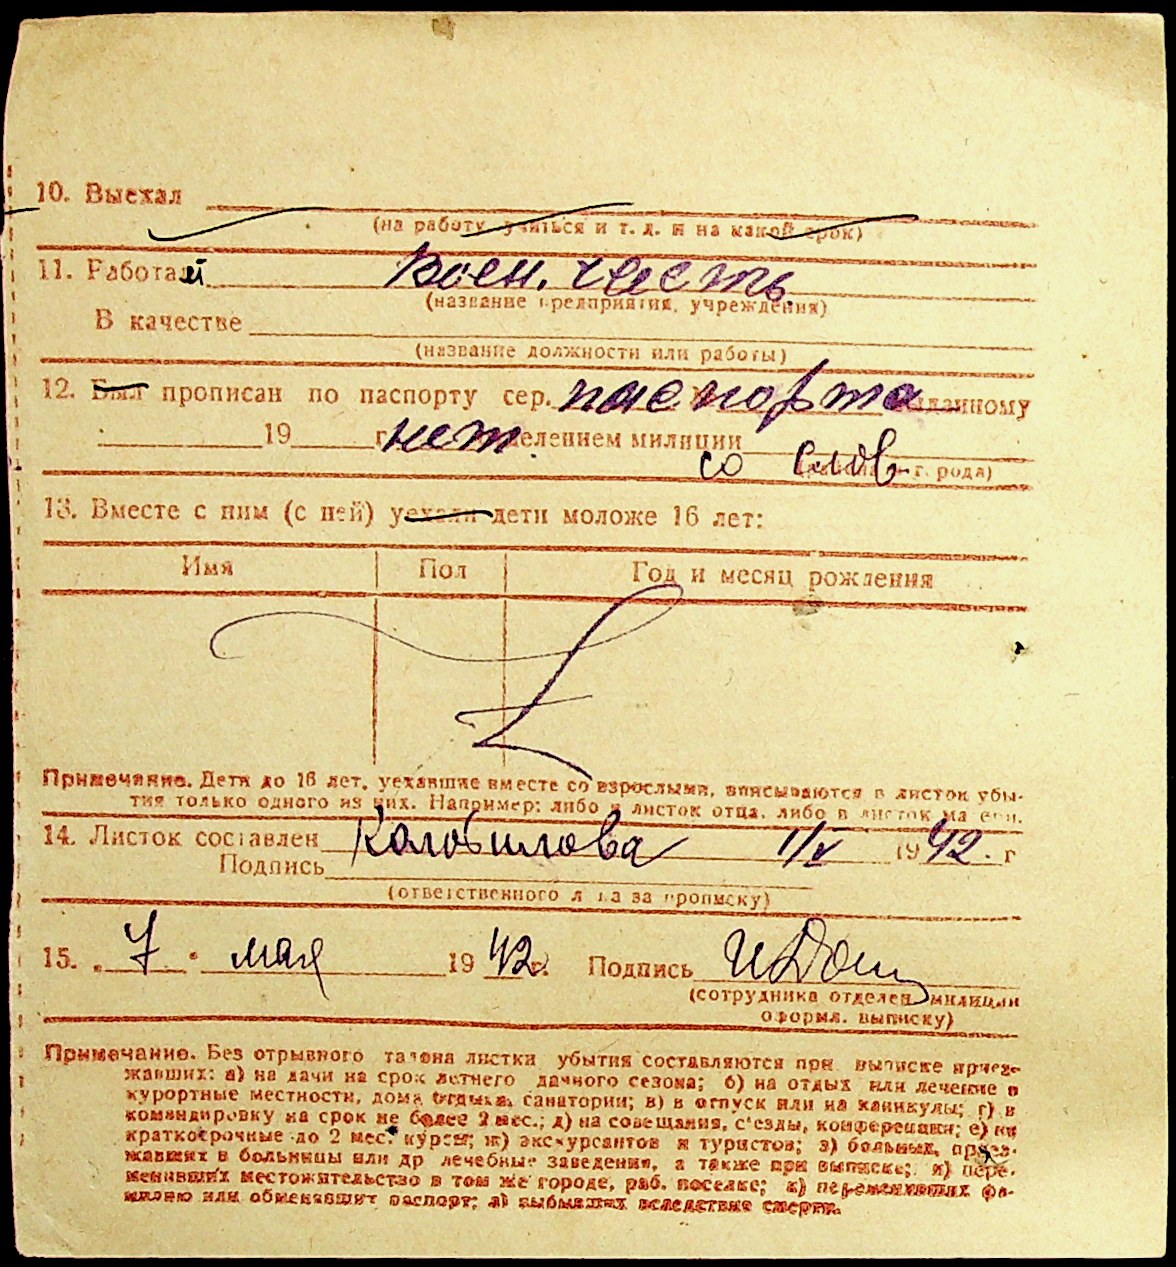 10. Выехал
(на работу, учиться и т. д. и на какой срок)
11. Работает Воен. часть
(название предприятия, учреждения)
В качестве
(название должности или работы)
12. Был прописан по паспорту сер. паспорта выданному
19 г. нет. отделением милиции
со слов г. рода)
13. Вместе с ним (с ней) уехали дети моложе 16 лет:
Имя Пол Год и месяц рождения
Примечание. Дети до 16 лет, уехавшие вместе со взрослыми, вписываются в листок убы-
тия только одного из них. Например: либо в листок отца, либо в листок матери.
14. Листок составлен 1/V 1942. г
Подпись
(ответственного лица за прописку)
15. „ 7 " мая 1942 г. Подпись
(сотрудника отделен. милиции
оформл. выписку)
Примечание. Без отрывного талона листки убытия составляются при выписке приез-
жавших: а) на дачи на срок летнего дачного сезона; б) на отдых или лечение в
курортные местности, дома отдыха, санатории; в) в отпуск или на каникулы; г) в
командировку на срок не более 2 мес.; д) на совещания, с'езды, конференции; е) на
краткосрочные до 2 мес. курсы; ж) экскурсантов и туристов; з) больных, приез-
жавших в больницы или др лечебные заведения, а также при выписке; и) пере-
менивших местожительство в том же городе, раб. поселке; к) переменивших фа-
милию или обменявших паспорт; л) выбывших вследствие смерти.